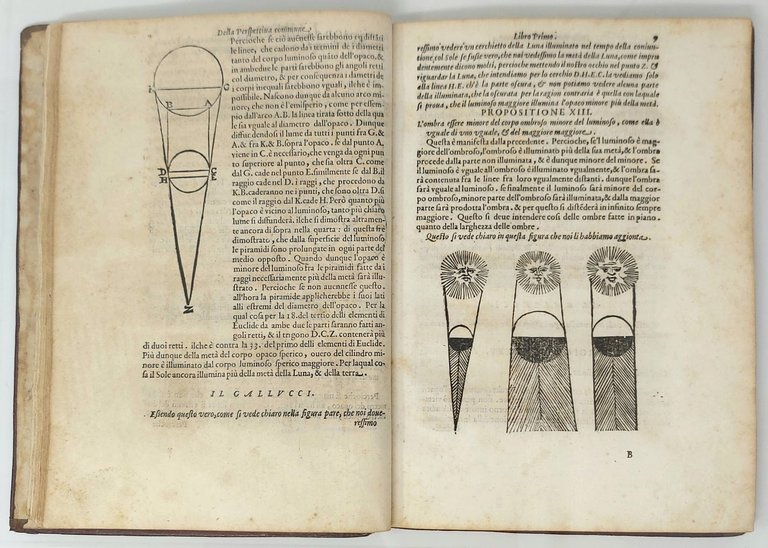 Della Perspettiva commune.
Percioche se ciò auenesse sarebbono eq̃distãti
le linee, che cadono da i termini de i diametti
tanto del corpo luminoso quãto dell'opaco, &
in ambedue le parti sarebbono gli angoli retti
col diametro, & per conseguenza i diametri de
i corpi inequali sarebbono vguali, ilche è im-
possibile. Nascono dunque da alcuno arco mi-
nore, che non è l'emisperio, come per essem-
pio dall'arco A.B. la linea tirata sotto della qua
le sia vguale al diametro dall'opaco. Dunque
diffundẽdosi il lume da tutti i punti fra G. &
A. & fra K. & B. sopra l'opaco. se dal punto A.
viene in C. è necessario, che venga da ogni pun
to superiore al punto, che sia oltra C. come
dal G. cade nel punto E. similmente se dal B. il
raggio cade nel D. i raggi, che procedono da
K.B. caderanno ne i punti, che sono oltra D. si
come il raggio dal K. cade H. Però quanto più
l'opaco è vicino al luminoso, tanto più chiaro
lume si diffunderà. ilche si dimostra altramen-
te ancora di sopra nella quarta: di questa fre
dimostrato, che dalla superficie del luminoso
le piramidi sono prolungate in ogni parte del
medio opposto. Quando dunque l'opaco è
minore del luminoso fra le piramidi fatte da i
raggi necessariamente più della metà sarà illu-
strato. Percioche se non auennesse questo.
all'hora la piramide applicherebbe i suoi lati
alli estremi del diametro dell'opaco. Per la
qual cosa per la 18. del terzo delli elementi di
Euclide da ambe due le parti saranno fatti an-
goli retti, & il trigono D.C.Z. contenerà più
di duoi retti. ilche è contra la 33. del primo delli elementi di Euclide.
Più dunque della metà del corpo opaco sperico, ouero del cilindro mi-
nore è illuminato dal corpo luminoso sperico maggiore. Per laqual co-
sa il Sole ancora illumina più della metà della Luna, & della terra.
IL GALLVCCI.
Essendo questo vero, come si vede chiaro nella figura pare, che noi doue-
ressimo
F
G
B
A
D
C
H
E
Z
Libro Primo.
9
ressimo vedere vn cerchietto della Luna illuminato nel tempo della coniun-
tione, col Sole se fusse vero, che noi vedessimo la metà della Luna, come impru
dentemente dicono molti, percioche mettendo il nostro occhio nel punto Z. &
riguardar la Luna, che intendiamo per lo cerchio D.H.E.C. la vediamo solo
alla linea H.E. ch'è la parte oscura, & non potiamo vedere alcuna parte
della illuminata, che la oscurata per la ragion contraria è quella con laquale
si proua, che il luminoso maggiore illumina l'opaco minore più della metà.
PROPOSITIONE XIII.
L'ombra essere minore del corpo ombroso minore del luminoso, come ella è
vguale di vno vguale, & del maggiore maggiore.
Questa è manifesta dalla precedente. Percioche, se'l luminoso è mag-
giore dell'ombroso, l'ombroso è illuminato più della sua metà, & l'ombra
procede dalla parte non illuminata, & è dunque minore del minore. Se
il luminoso è vguale all'ombroso è illuminato vgualmente, & l'ombra sa-
rà contenuta fra le linee fra loro vgualmente distanti. dunque l'ombra
sarà vguale al luminoso. se finalmente il luminoso sarà minore del cor-
po ombroso, minore parte dell'ombroso sarà illuminata, & dalla maggior
parte sarà prodotta l'ombra. & per questo si distẽderà in infinito sempre
maggiore. Questo si deue intendere cosi delle ombre fatte in piano.
quanto della larghezza delle ombre.
Questo si vede chiaro in questa figura che noi li habbiamo aggionta.
B